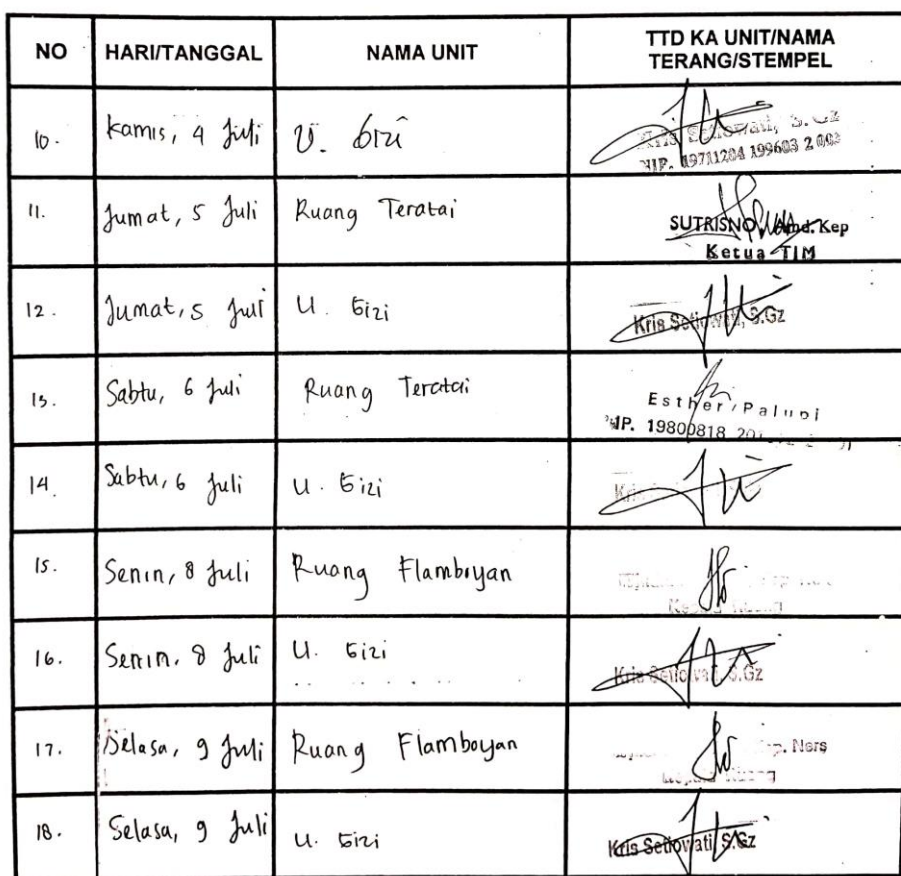 NO HARI/TANGGAL NAMA UNIT TTD KA UNIT/NAMA TERANG/STEMPEL
10. Kamis, 4 Juli U. Gizi Kris Setiowati, S.Gz
NIP. 19711204 199603 2 003
11. Jumat, 5 Juli Ruang Teratai SUTRISNO Amd. Kep
Ketua TIM
12. Jumat, 5 Juli U. Gizi Kris Setiowati, S.Gz
13. Sabtu, 6 Juli Ruang Teratai Esther Palupi
NIP. 19800818
14. Sabtu, 6 Juli U. Gizi Kris
15. Senin, 8 Juli Ruang Flamboyan
16. Senin, 8 Juli U. Gizi Kris Setiowati, S.Gz
17. Selasa, 9 Juli Ruang Flamboyan Ners
18. Selasa, 9 Juli U. Gizi Kris Setiowati, S.Gz